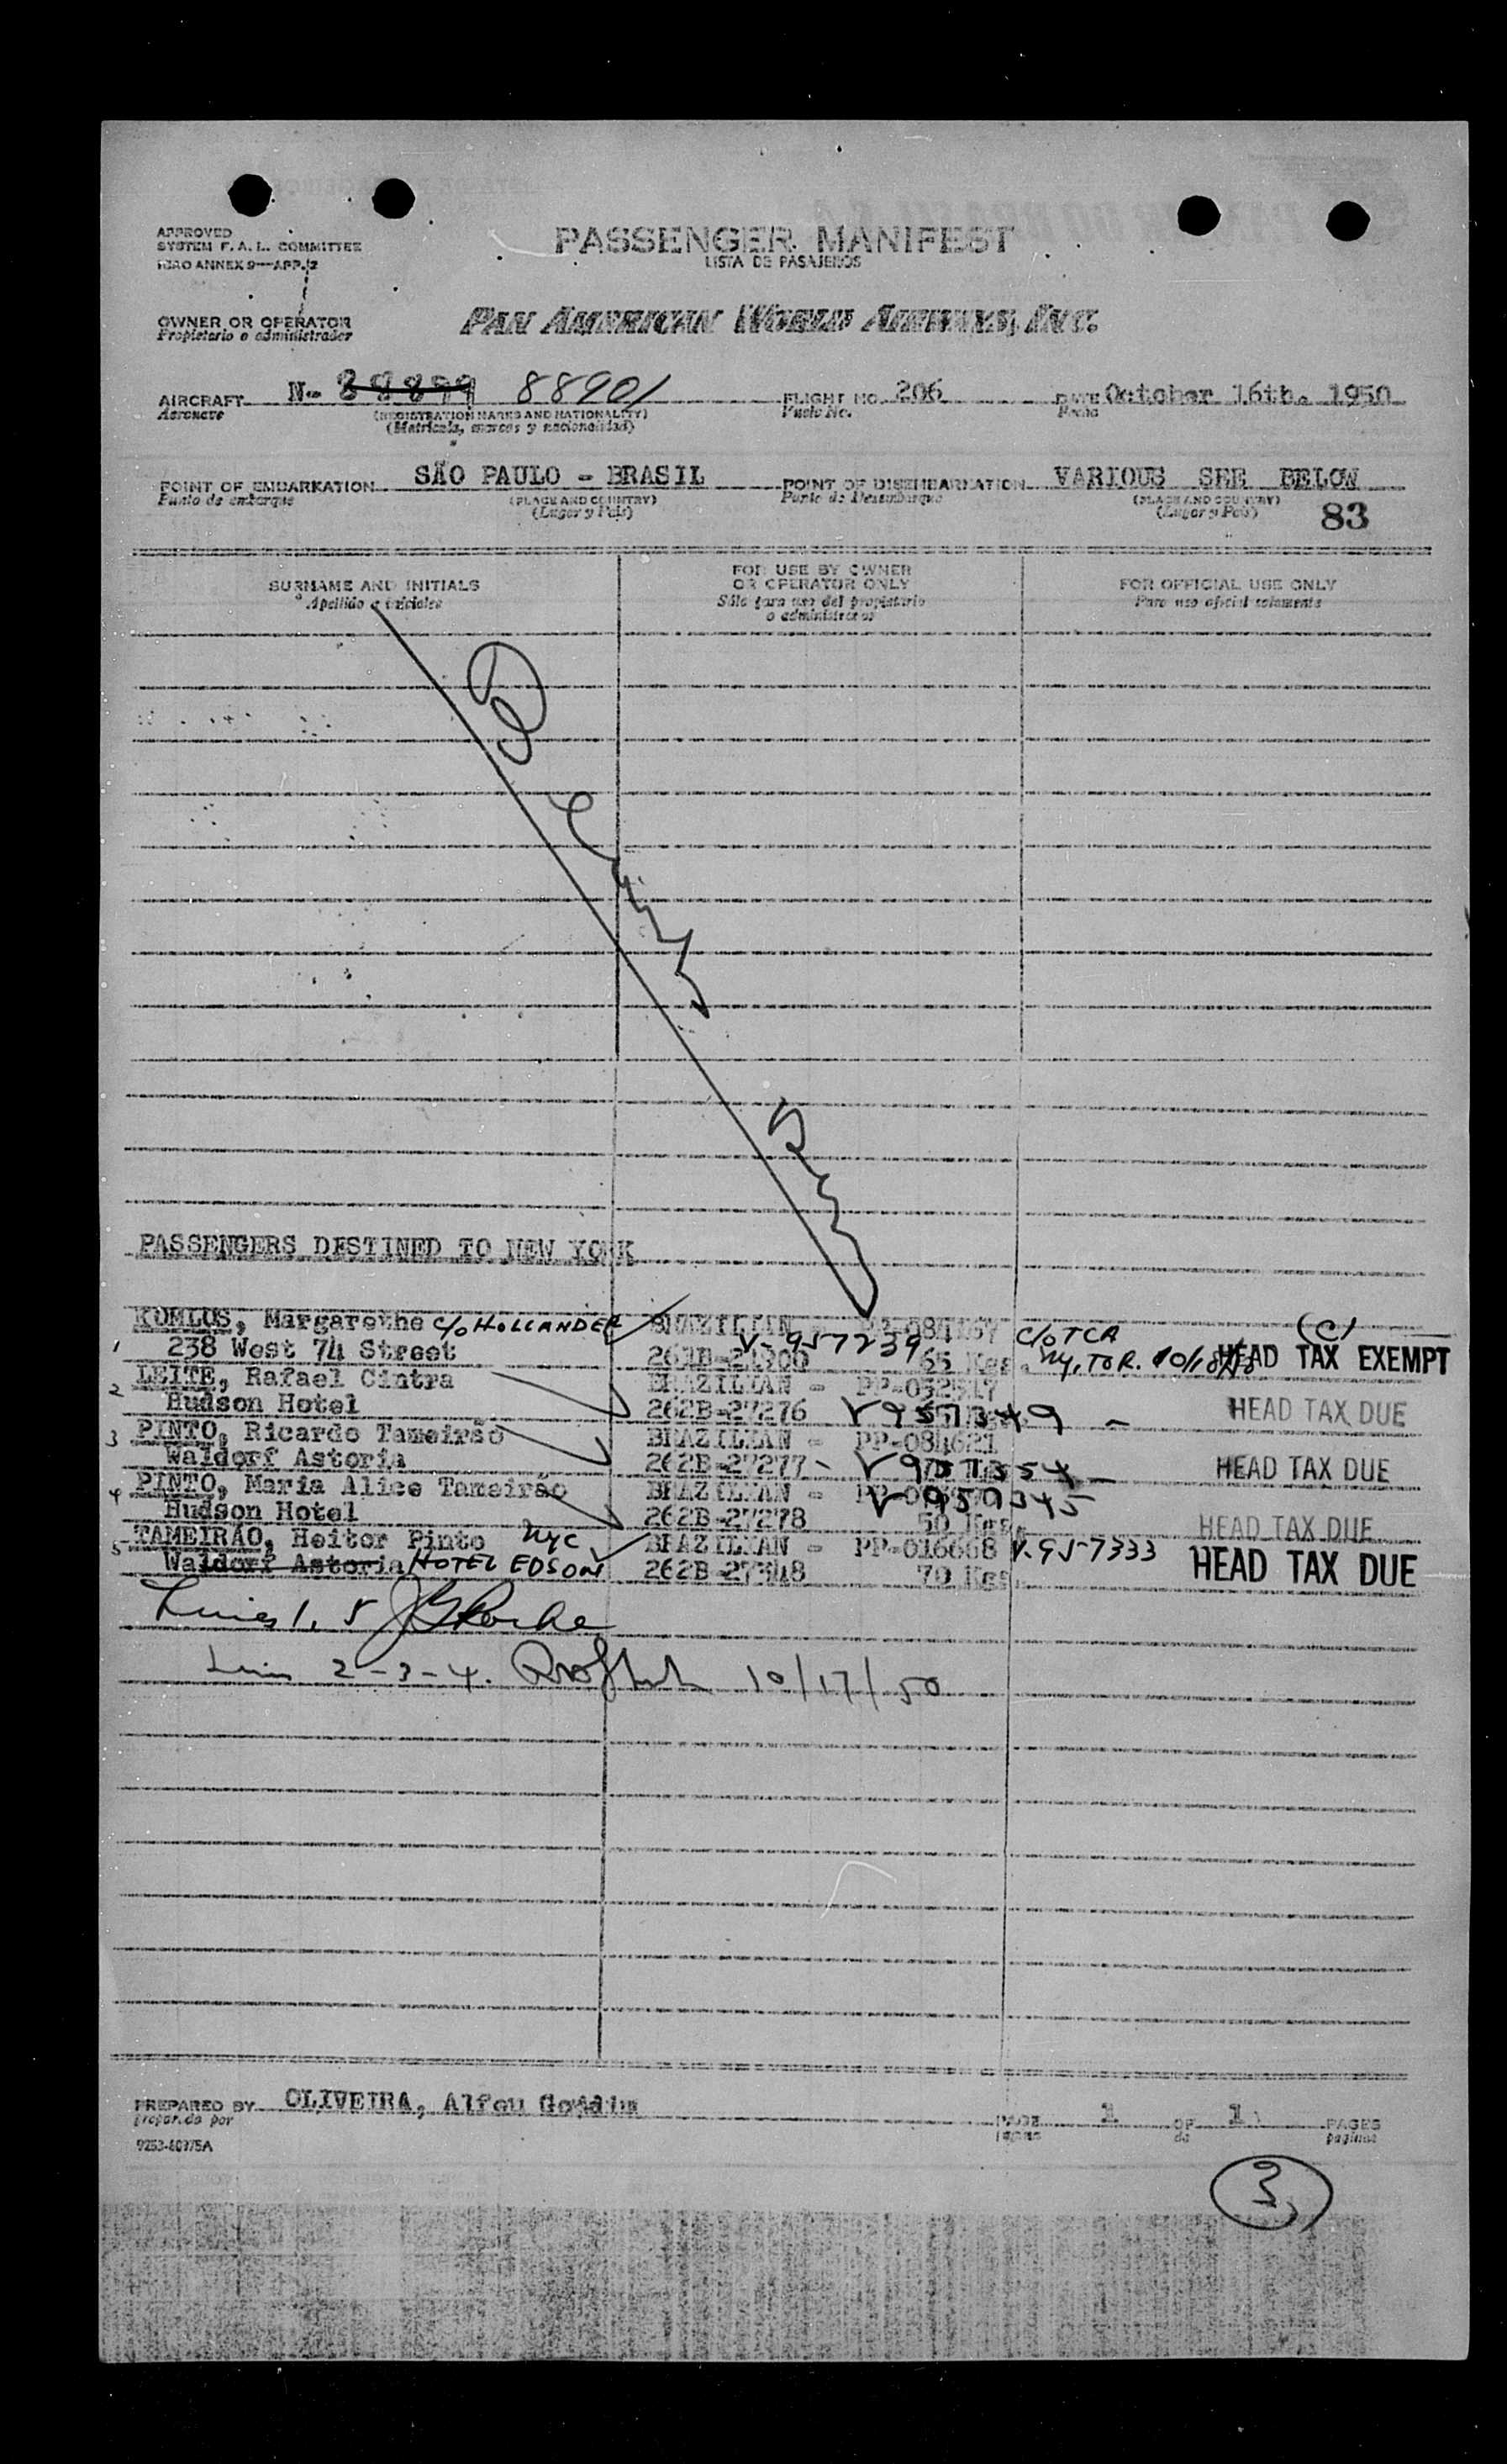 APPROVED
SYSTEM F. A. L. COMMITTEE
ICAO ANNEX 9—APP. 2
PASSENGER MANIFEST
LISTA DE PASAJEROS
OWNER OR OPERATOR
Propietario o administrador
PAN AMERICAN WORLD AIRWAYS, INC.
AIRCRAFT N- 88899 88901 FLIGHT NO. 206 DATE October 16th. 1950
Aeronave (REGISTRATION MARKS AND NATIONALITY) Vuelo No. Fecha
(Matricula, marcas y nacionalidad)
POINT OF EMBARKATION SÃO PAULO - BRASIL POINT OF DISEMBARKATION VARIOUS SEE BELOW
Punto de embarque (PLACE AND COUNTRY) Punto de Desembarque (PLACE AND COUNTRY)
(Lugar y País) (Lugar y País) 83
SURNAME AND INITIALS
Apellido e iniciales
FOR USE BY OWNER
OR OPERATOR ONLY
Sólo para uso del propietario
o administrador
FOR OFFICIAL USE ONLY
Para uso oficial solamente
PASSENGERS DESTINED TO NEW YORK
KOMLOS, Margarethe c/o HOLLANDER BRAZILIAN c/o TCA (C)
1 238 West 74 Street V-957239 65 Kgs. HEAD TAX EXEMPT
LEITE, Rafael Cintra BRAZILIAN -
2 Hudson Hotel 262B-27276 HEAD TAX DUE
3 PINTO, Ricardo Tameirão BRAZILIAN - PP-084621
Waldorf Astoria 262B-27277 HEAD TAX DUE
4 PINTO, Maria Alice Tameirão BRAZILIAN -
Hudson Hotel 262B-27278 50 Kgs. HEAD TAX DUE
5 TAMEIRÃO, Heitor Pinto NYC BRAZILIAN - PP-016668 V-957333
Waldorf Astoria HOTEL EDSON 70 Kgs. HEAD TAX DUE
Lines 1, 5
Lines 2-3-4. 10/17/50
PREPARED BY OLIVEIRA, PAGE 1 OF 1 PAGES
preparado por página de paginas
3